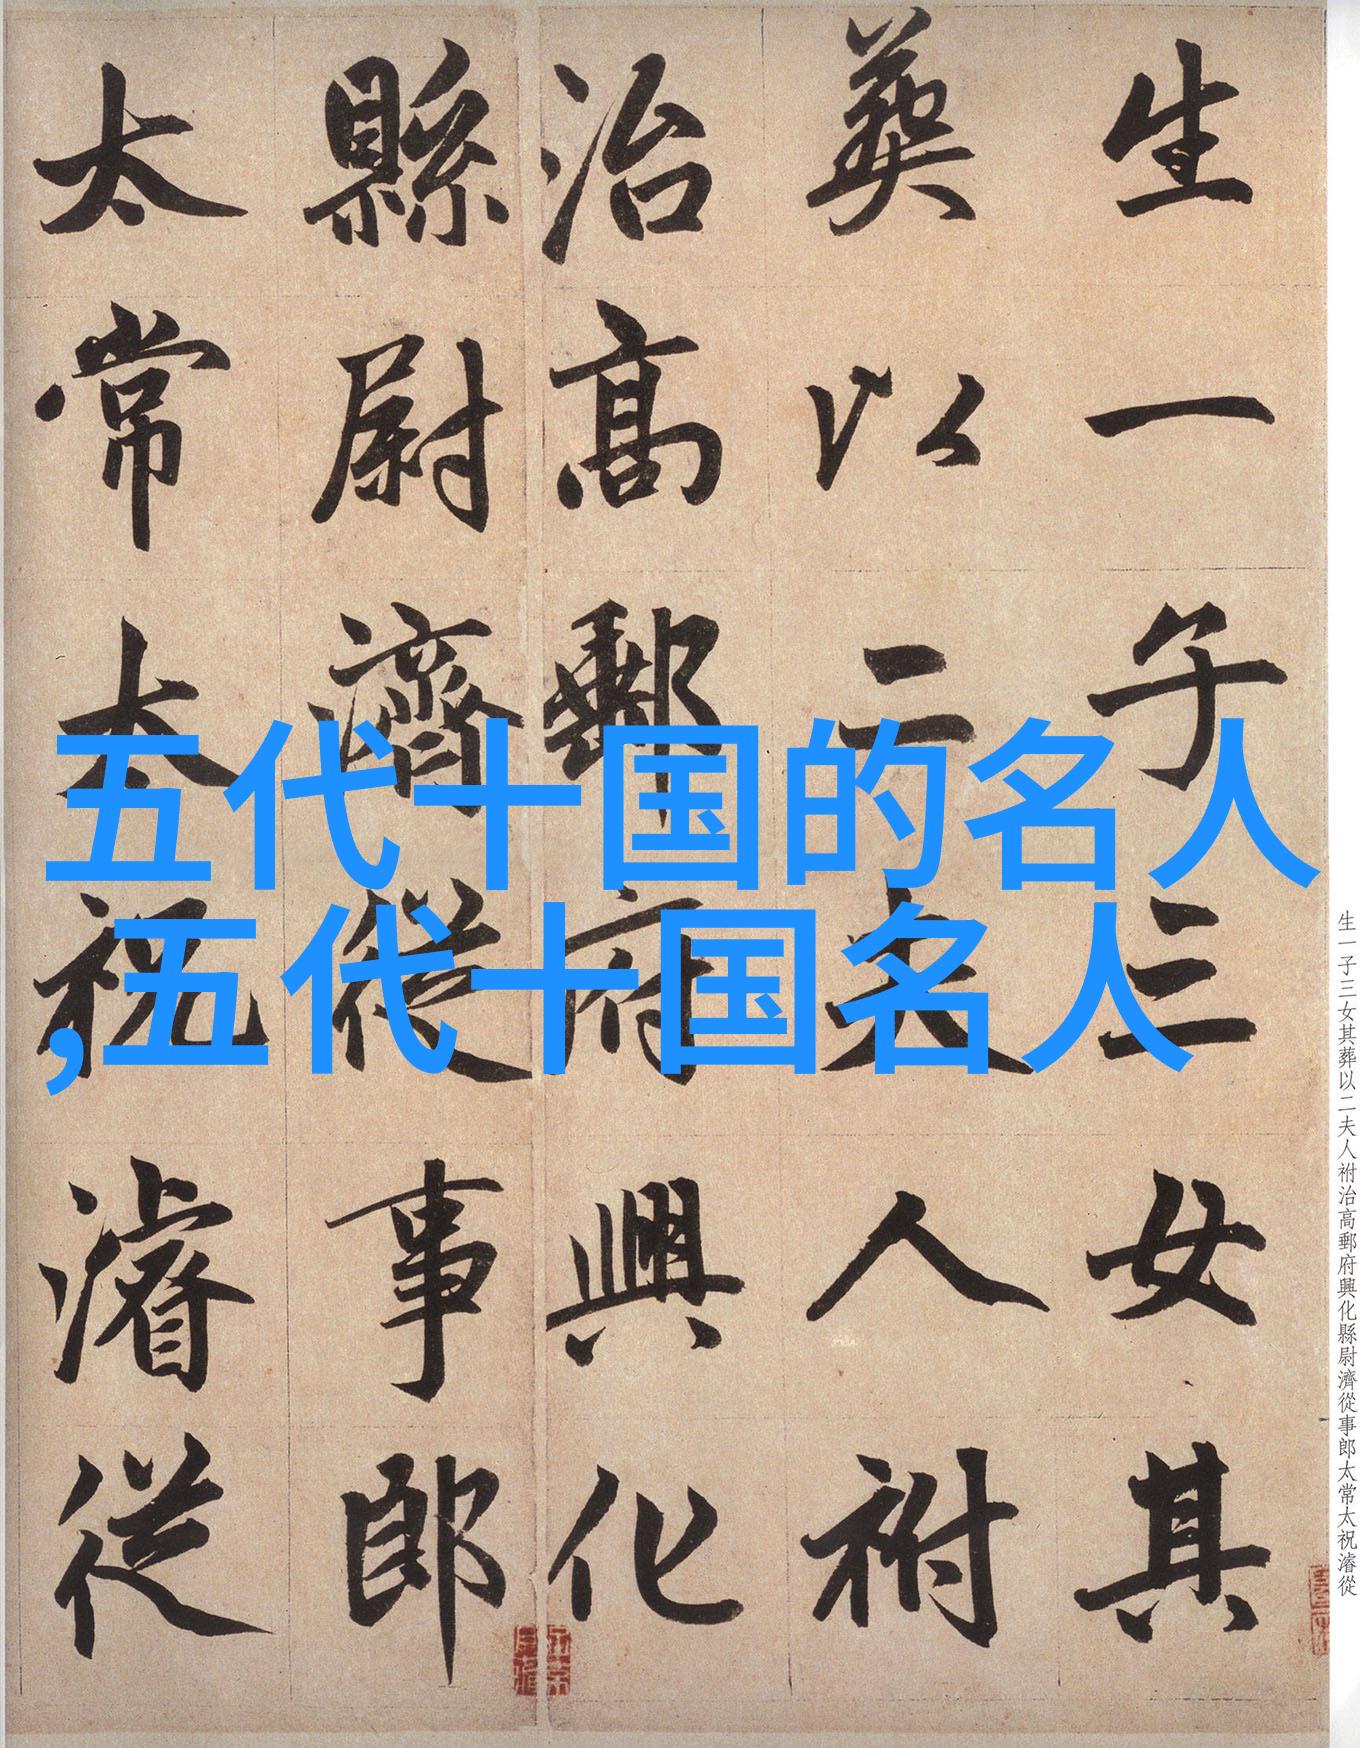 生一子三女其
葬以二夫人祔
治高郵府興化
縣尉濟從事郎
太常太祝濬從
五代十国的名人
,五代十国名人
生一子三女其葬以二夫人祔治高郵府興化縣尉濟從事郎太常太祝濬從